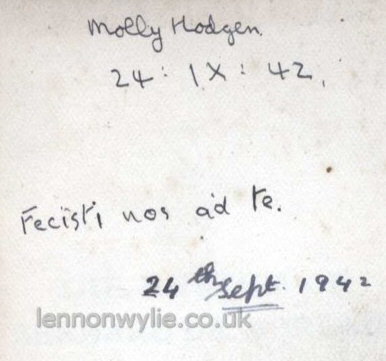 Molly Hodgen.
24: IX: 42.
Fecisti nos ad te.
24th Sept. 1942
lennonwylie.co.uk